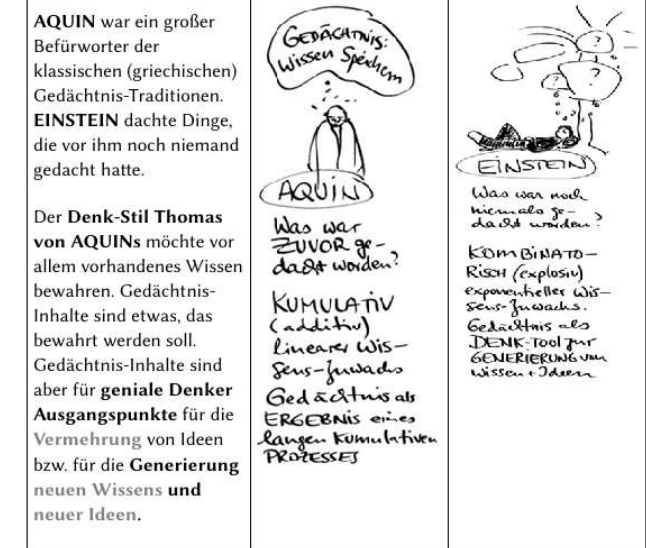 AQUIN war ein großer
Befürworter der
klassischen (griechischen)
Gedächtnis-Traditionen.
EINSTEIN dachte Dinge,
die vor ihm noch niemand
gedacht hatte.
Der Denk-Stil Thomas
von AQUINs möchte vor
allem vorhandenes Wissen
bewahren. Gedächtnis-
Inhalte sind etwas, das
bewahrt werden soll.
Gedächtnis-Inhalte sind
aber für geniale Denker
Ausgangspunkte für die
Vermehrung von Ideen
bzw. für die Generierung
neuen Wissens und
neuer Ideen.
GEDÄCHTNIS:
Wissen Speichern
AQUIN
Was war
ZUVOR ge-
dacht worden?
KUMULATIV
(additiv)
linearer Wis-
sens-Zuwachs
Gedächtnis als
ERGEBNIS eines
langen kumulativen
PROZESSES
?
?
?
EINSTEIN
Was war noch
niemals ge-
dacht worden?
KOMBINATO-
RISCH (explosiv)
exponentieller Wis-
sens-Zuwachs.
Gedächtnis als
DENK-TOOL zur
GENERIERUNG von
Wissen + Ideen